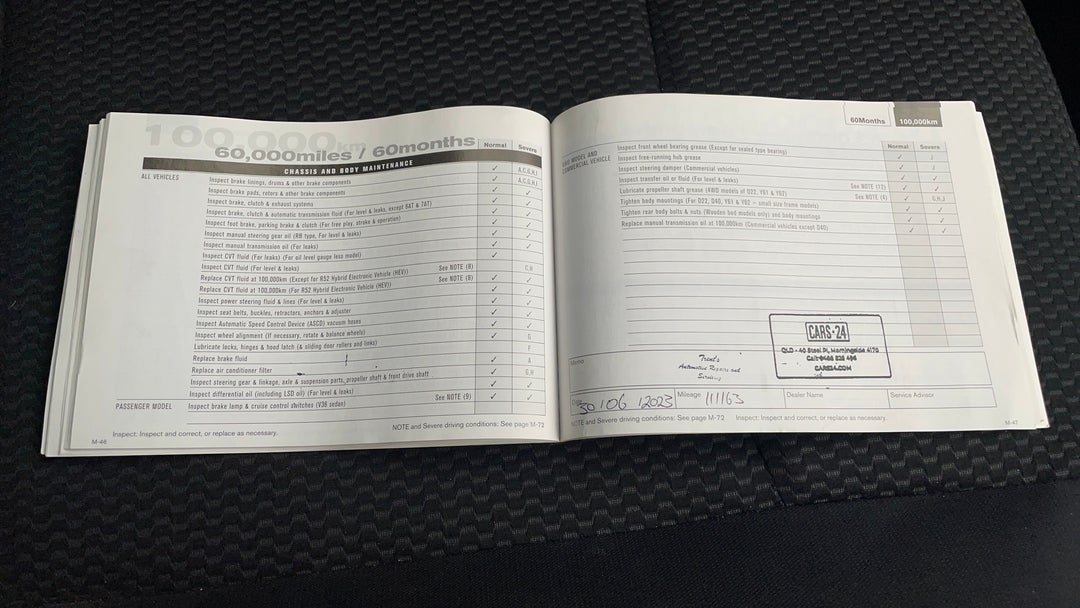 100,000km
60,000miles / 60months
Normal Severe
CHASSIS AND BODY MAINTENANCE
ALL VEHICLES
Inspect brake linings, drums & other brake components ✓ A,C,G,H,I
Inspect brake pads, rotors & other brake components ✓ A,C,G,H,I
Inspect brake, clutch & exhaust systems ✓ ✓
Inspect brake, clutch & automatic transmission fluid (For level & leaks, except 6AT & 7AT) ✓ ✓
Inspect foot brake, parking brake & clutch (For free play, stroke & operation) ✓ ✓
Inspect manual steering gear oil (RB type, For level & leaks) ✓ ✓
Inspect manual transmission oil (For leaks) ✓ ✓
Inspect CVT fluid (For leaks) (For oil level gauge less model) ✓ ✓
Inspect CVT fluid (For level & leaks) ✓
Replace CVT fluid at 100,000km (Except for R52 Hybrid Electronic Vehicle (HEV)) See NOTE (8) C,H
Replace CVT fluid at 100,000km (For R52 Hybrid Electronic Vehicle (HEV)) See NOTE (8) ✓ ✓
Inspect power steering fluid & lines (For level & leaks) ✓ ✓
Inspect seat belts, buckles, retractors, anchors & adjuster ✓ ✓
Inspect Automatic Speed Control Device (ASCD) vacuum hoses ✓ ✓
Inspect wheel alignment (If necessary, rotate & balance wheels) ✓ ✓
Lubricate locks, hinges & hood latch (& sliding door rollers and links) ✓ G
Replace brake fluid F
Replace air conditioner filter ✓ A
Inspect steering gear & linkage, axle & suspension parts, propeller shaft & front drive shaft ✓ G,H
Inspect differential oil (including LSD oil) (For level & leaks) ✓ ✓
PASSENGER MODEL
Inspect brake lamp & cruise control switches (V36 sedan) See NOTE (9) ✓ ✓
Inspect: Inspect and correct, or replace as necessary.
NOTE and Severe driving conditions: See page M-72
M-46
60Months 100,000km
Normal Severe
4WD MODEL AND
COMMERCIAL VEHICLE
Inspect front wheel bearing grease (Except for sealed type bearing)
Inspect free-running hub grease
Inspect steering damper (Commercial vehicles)
Inspect transfer oil or fluid (For level & leaks)
Lubricate propeller shaft grease (4WD models of D22, Y61 & Y62) See NOTE (12)
Tighten body mountings (For D22, D40, Y61 & Y62 – small size frame models) See NOTE (6) G,H,J
Tighten rear body bolts & nuts (Wooden bed models only) and body mountings
Replace manual transmission oil at 100,000km (Commercial vehicles except D40)
CARS·24
QLD - 40 Steel Pl, Morningside 4170
CARS24.COM
Memo
Trent's
Automotive Repairs and
Servicing
Date 30/06/2023
Mileage 111163
Dealer Name
Service Advisor
NOTE and Severe driving conditions: See page M-72
Inspect: Inspect and correct, or replace as necessary.
M-47